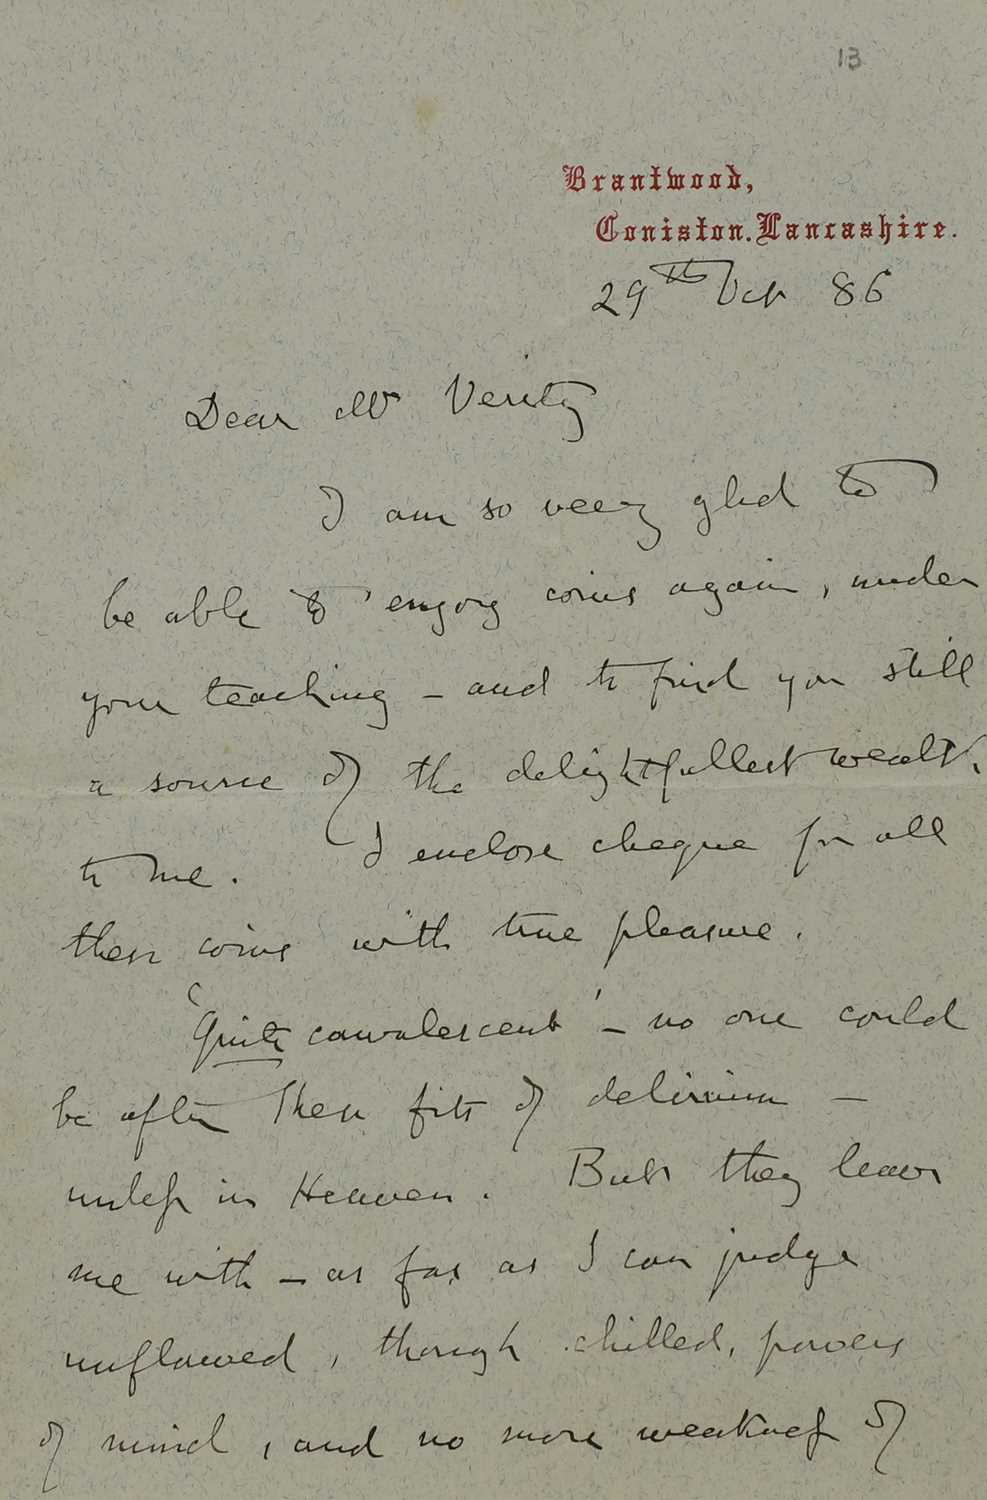 13
Brantwood,
Coniston. Lancashire.
29th 86
Dear Mr Verity
I am so very glad to
be able to enjoy coins again, under
your teaching – and to find you still
a source of the delightfullest wealth
to me. I enclose cheque for all
these coins with true pleasure.
'Quite convalescent' – no one could
be after these fits of delirium –
unless in Heaven. But they leave
me with – as far as I can judge
unflawed, though chilled, powers
of mind, and no more weakness of